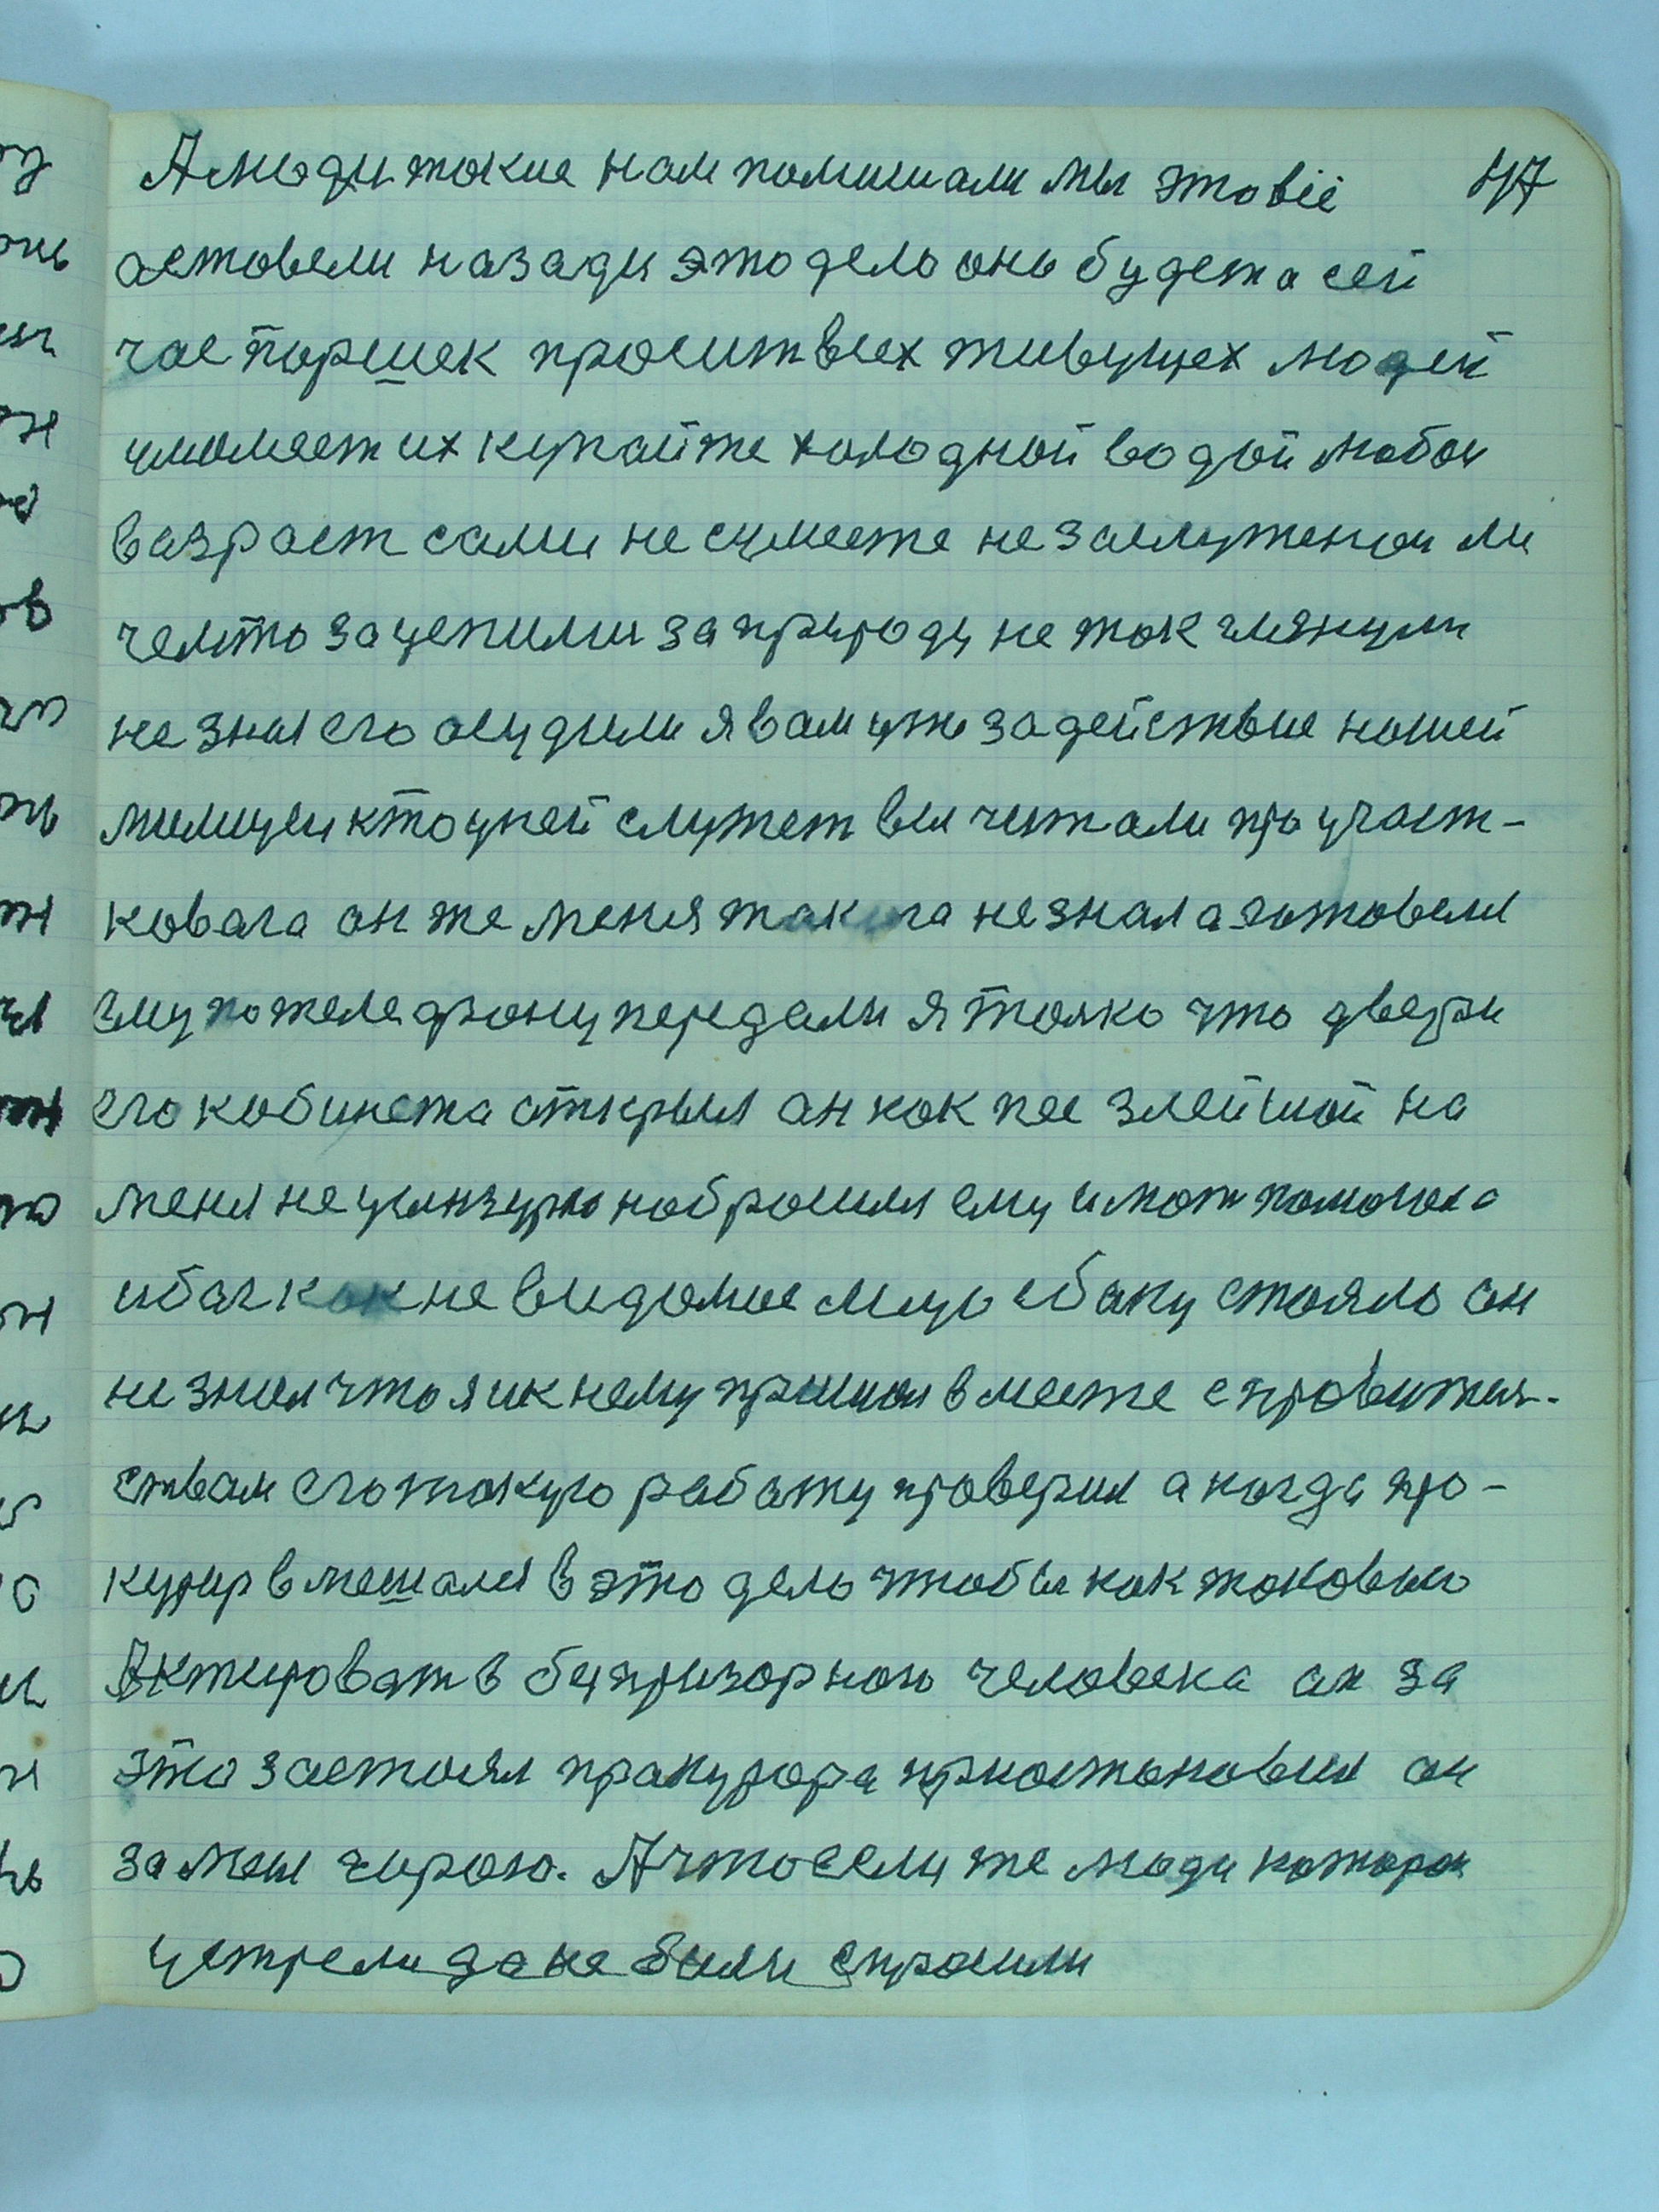 А люди такие нам помишали мы это всё 47
аставели назади это дело оно будет а сей
час Паршек просит всех живущех людей
умоляет их купайте холодной водой любои
вазраст сами не сумеете незаслуженои ли
чемто зацепили за природу не так глянули
не зная его асудили я вам уже за действие нашей
милицеи кто у ней служет вы читали про участ-
ковага он же меня такога не знал а готовелся
ему по телефону передали я толко что двери
его кабинета открыл ан как пес злейшой на
меня не цынзурно набросился ему и мат помогал а
ибаг как не видомое лицо сбаку стояло он
не знал что я ик нему пришол вместе с провитель-
ствам его такую работу проверил а когда про-
курир вмешался в это дело чтобы как таковыо
Актировать бизпризорнои человека ан за
это застоял пракурора приостоновил он
за меня гирою. А что если же люди которои
устрели да не были спросили